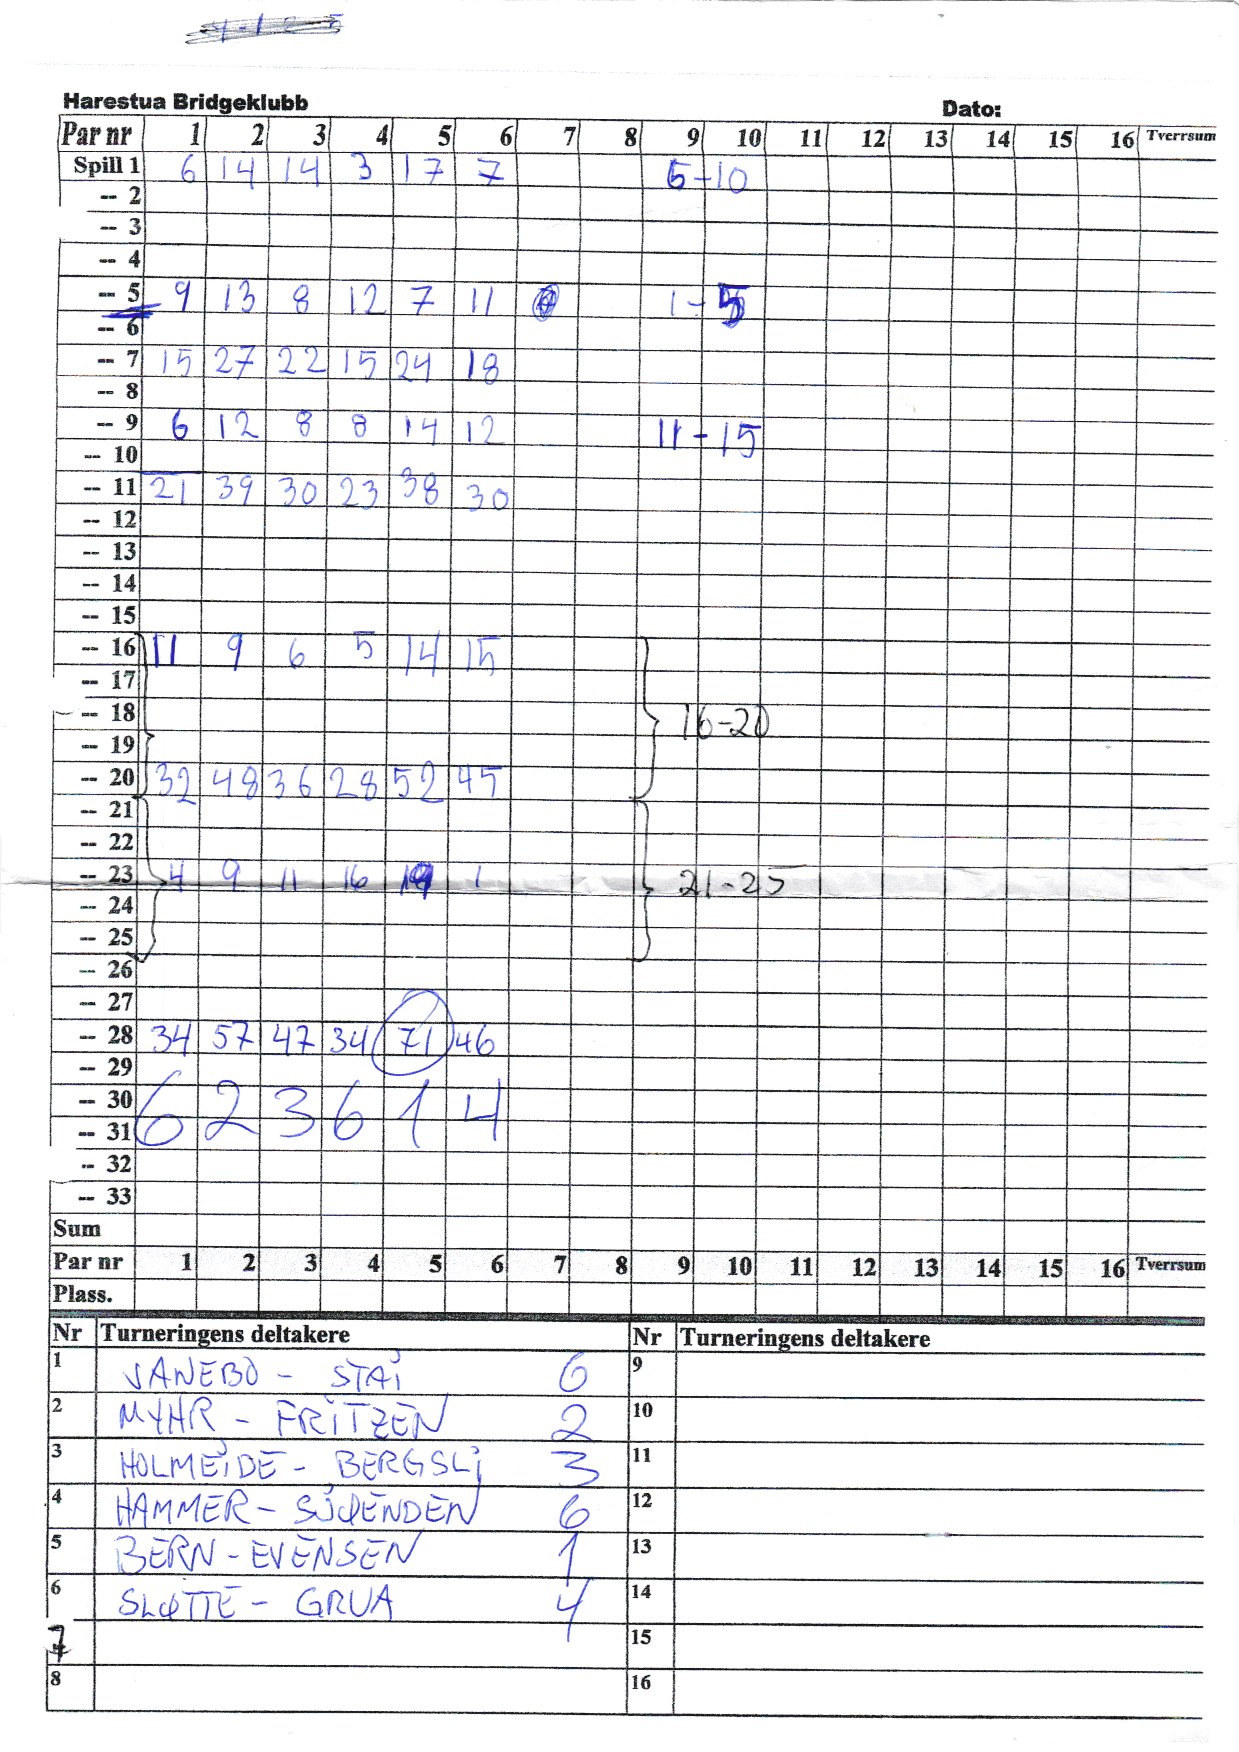 Harestua Bridgeklubb Dato:
Par nr 1 2 3 4 5 6 7 8 9 10 11 12 13 14 15 16 Tverrsum
Spill 1 6 14 14 3 17 7 6-10
-- 2
-- 3
-- 4
-- 5 9 13 8 12 7 11 1-5
-- 6
-- 7 15 27 22 15 24 18
-- 8
-- 9 6 12 8 8 14 12 11-15
-- 10
-- 11 21 39 30 23 38 30
-- 12
-- 13
-- 14
-- 15
-- 16 11 9 6 5 14 15
-- 17
-- 18 16-20
-- 19
-- 20 32 48 36 28 52 45
-- 21
-- 22
-- 23 4 9 11 16 19 1 21-25
-- 24
-- 25
-- 26
-- 27
-- 28 34 57 47 34 71 46
-- 29
-- 30 6 2 3 6 1 4
-- 31
-- 32
-- 33
Sum
Par nr 1 2 3 4 5 6 7 8 9 10 11 12 13 14 15 16 Tverrsum
Plass.
Nr Turneringens deltakere Nr Turneringens deltakere
1 VANEBO - STAi 6 9
2 MYHR - FRiTZEN 2 10
3 HOLMEiDE - BERGSLi 3 11
4 HAMMER - 6 12
5 BERN - EVENSEN 1 13
6 SLØTTE - GRUA 4 14
7 15
8 16